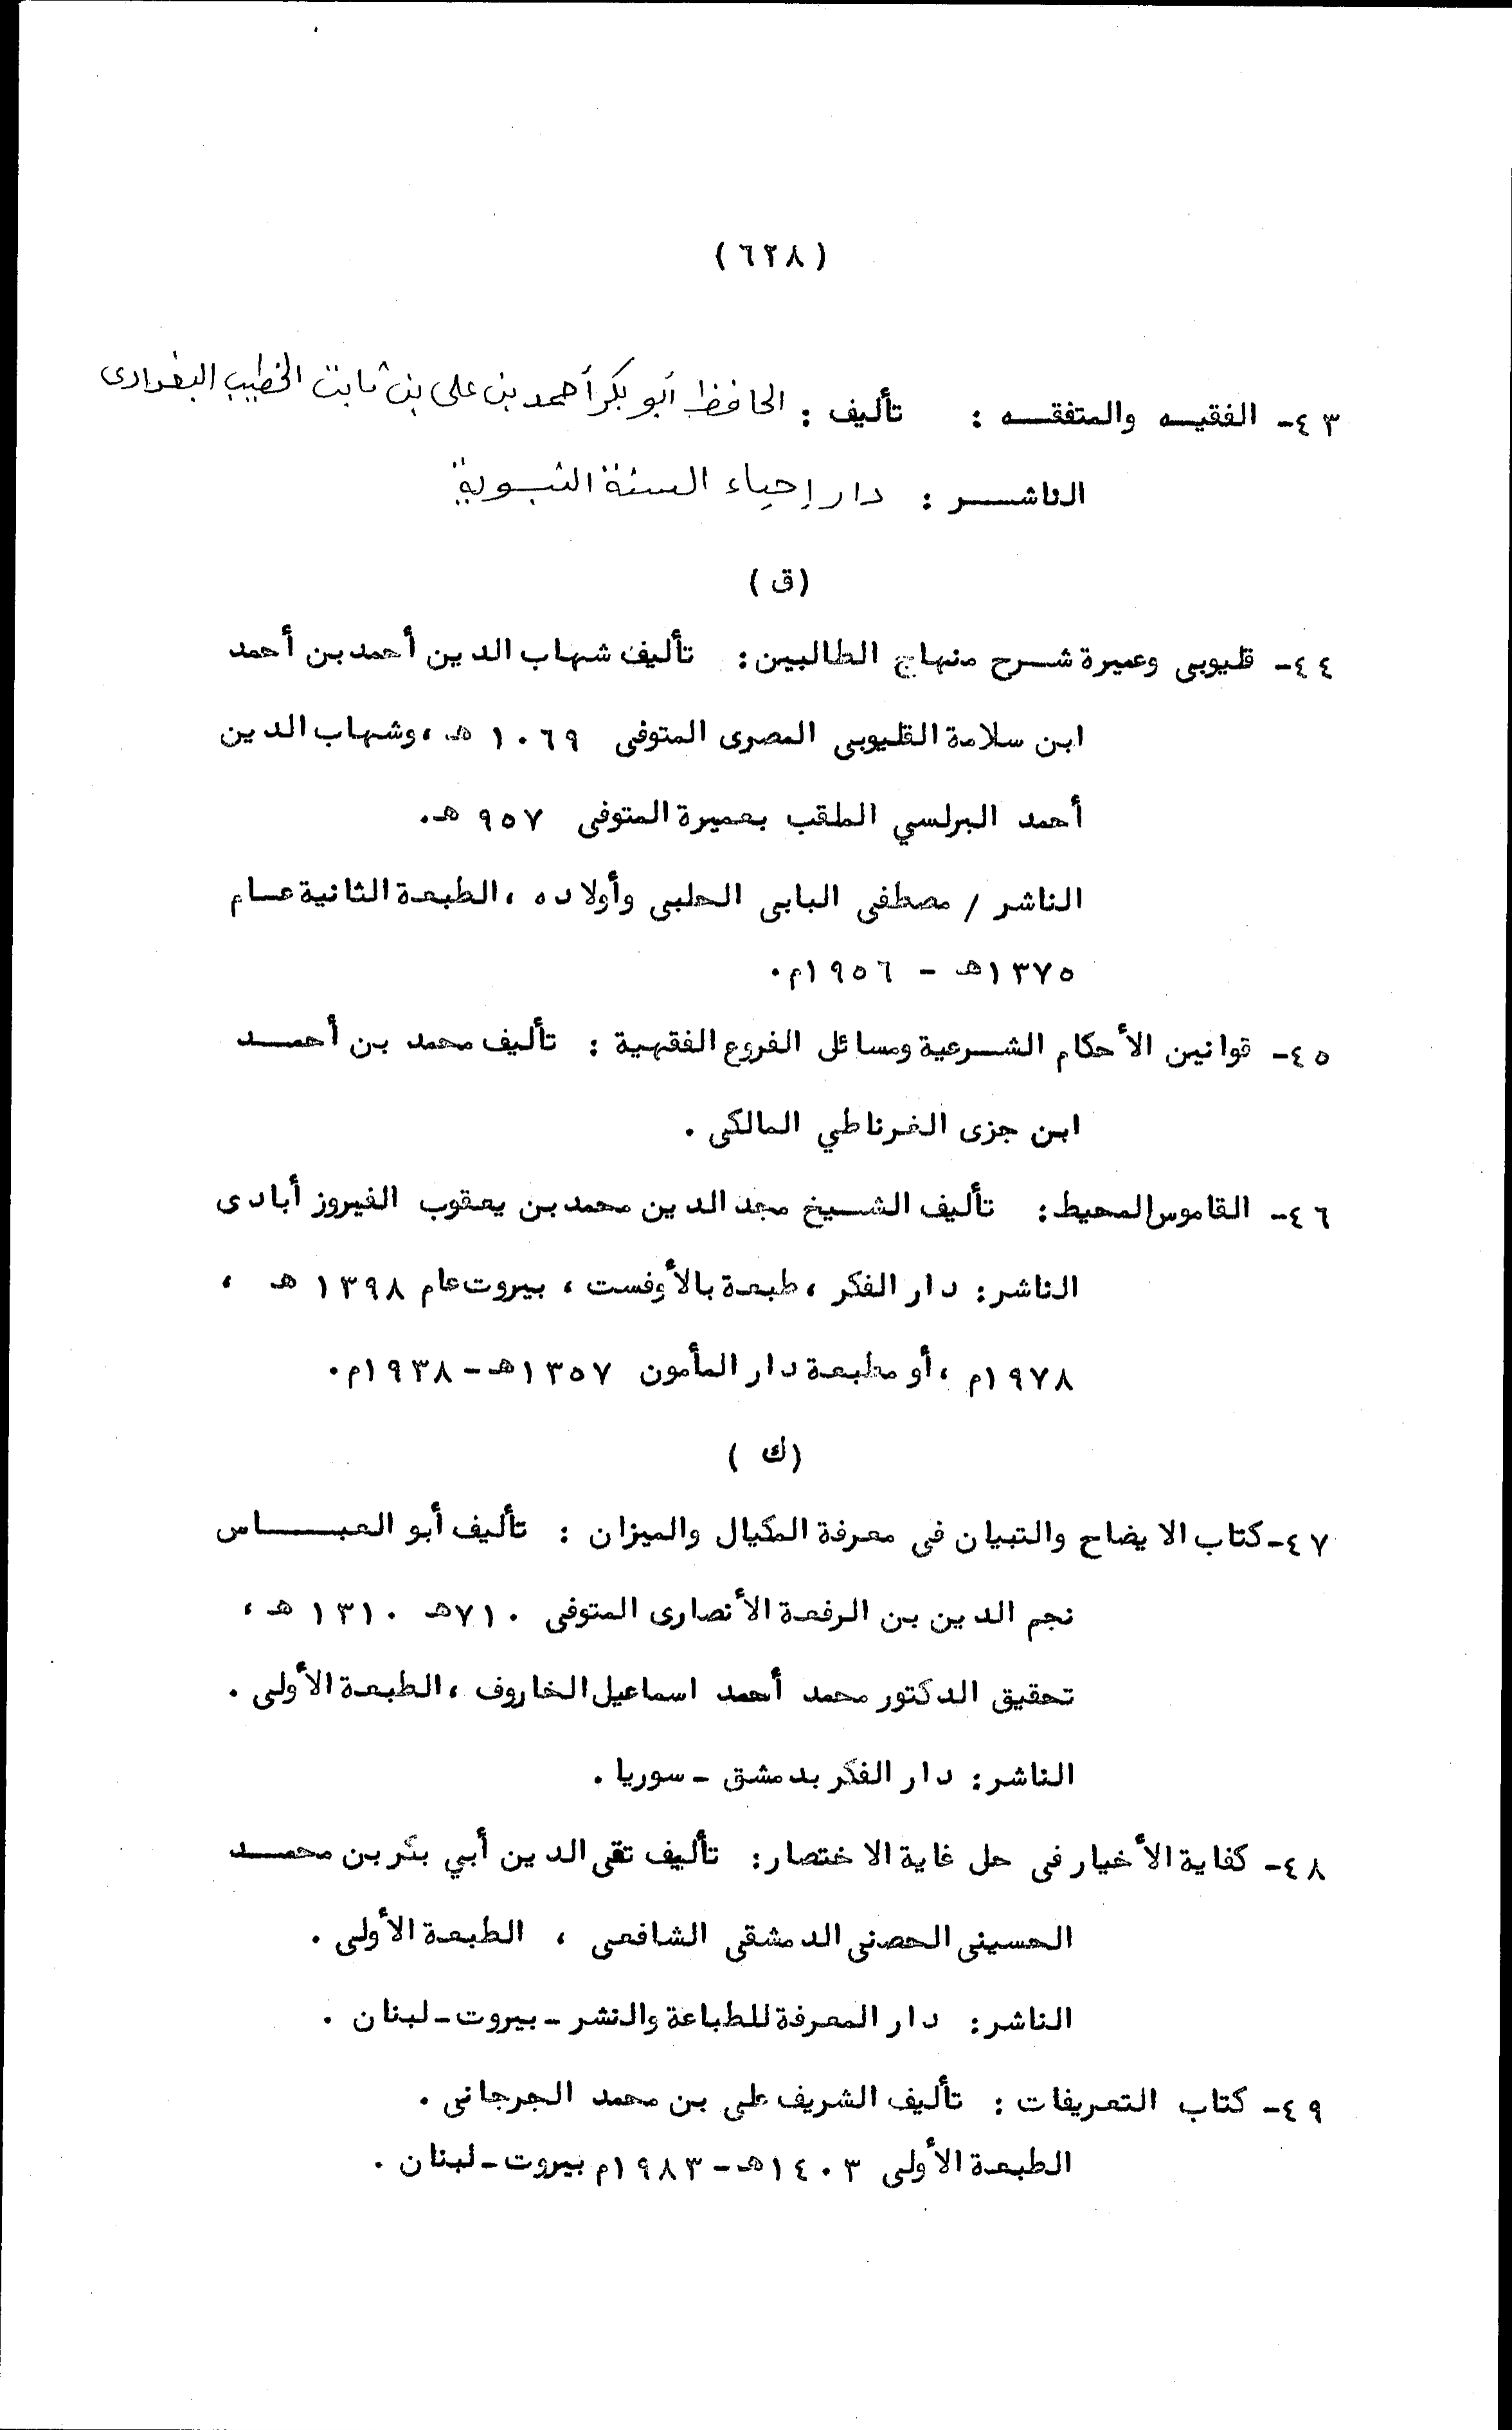 (٦٢٨)
٤٣- الفقيه والمتفقه : تأليف : الحافظ أبو بكر أحمد بن على بن ثابت الخطيب البغدادى
الناشر : دار إحياء السنة النبوية
(ق)
٤٤- قليوبى وعميرة شرح منهاج الطالبين : تأليف شهاب الدين أحمد بن أحمد
ابن سلامة القليوبى المصرى المتوفى ١٠٦٩ هـ ، وشهاب الدين
أحمد البرلسي الملقب بعميرة المتوفى ٩٥٧ هـ.
الناشر / مصطفى البابى الحلبى وأولاده ، الطبعة الثانية عام
١٣٧٥هـ - ١٩٥٦م.
٤٥- قوانين الأحكام الشرعية ومسائل الفروع الفقهية : تأليف محمد بن أحمد
ابن جزى الغرناطي المالكى .
٤٦- القاموس المحيط : تأليف الشيخ مجد الدين محمد بن يعقوب الفيروز أبادى
الناشر : دار الفكر ، طبعة بالأوفست ، بيروت عام ١٣٩٨ هـ ،
١٩٧٨م ، أو مطبعة دار المأمون ١٣٥٧هـ - ١٩٣٨م.
(ك)
٤٧- كتاب الايضاح والتبيان فى معرفة المكيال والميزان : تأليف أبو العباس
نجم الدين بن الرفعة الأنصارى المتوفى ٧١٠هـ ١٣١٠ هـ ،
تحقيق الدكتور محمد أحمد اسماعيل الخاروف ، الطبعة الأولى .
الناشر : دار الفكر بدمشق - سوريا .
٤٨- كفاية الأخيار فى حل غاية الاختصار : تأليف تقى الدين أبي بكر بن محمد
الحسينى الحصنى الدمشقى الشافعى ، الطبعة الأولى .
الناشر : دار المعرفة للطباعة والنشر - بيروت - لبنان .
٤٩- كتاب التعريفات : تأليف الشريف على بن محمد الجرجانى .
الطبعة الأولى ١٤٠٣هـ - ١٩٨٣م بيروت - لبنان .